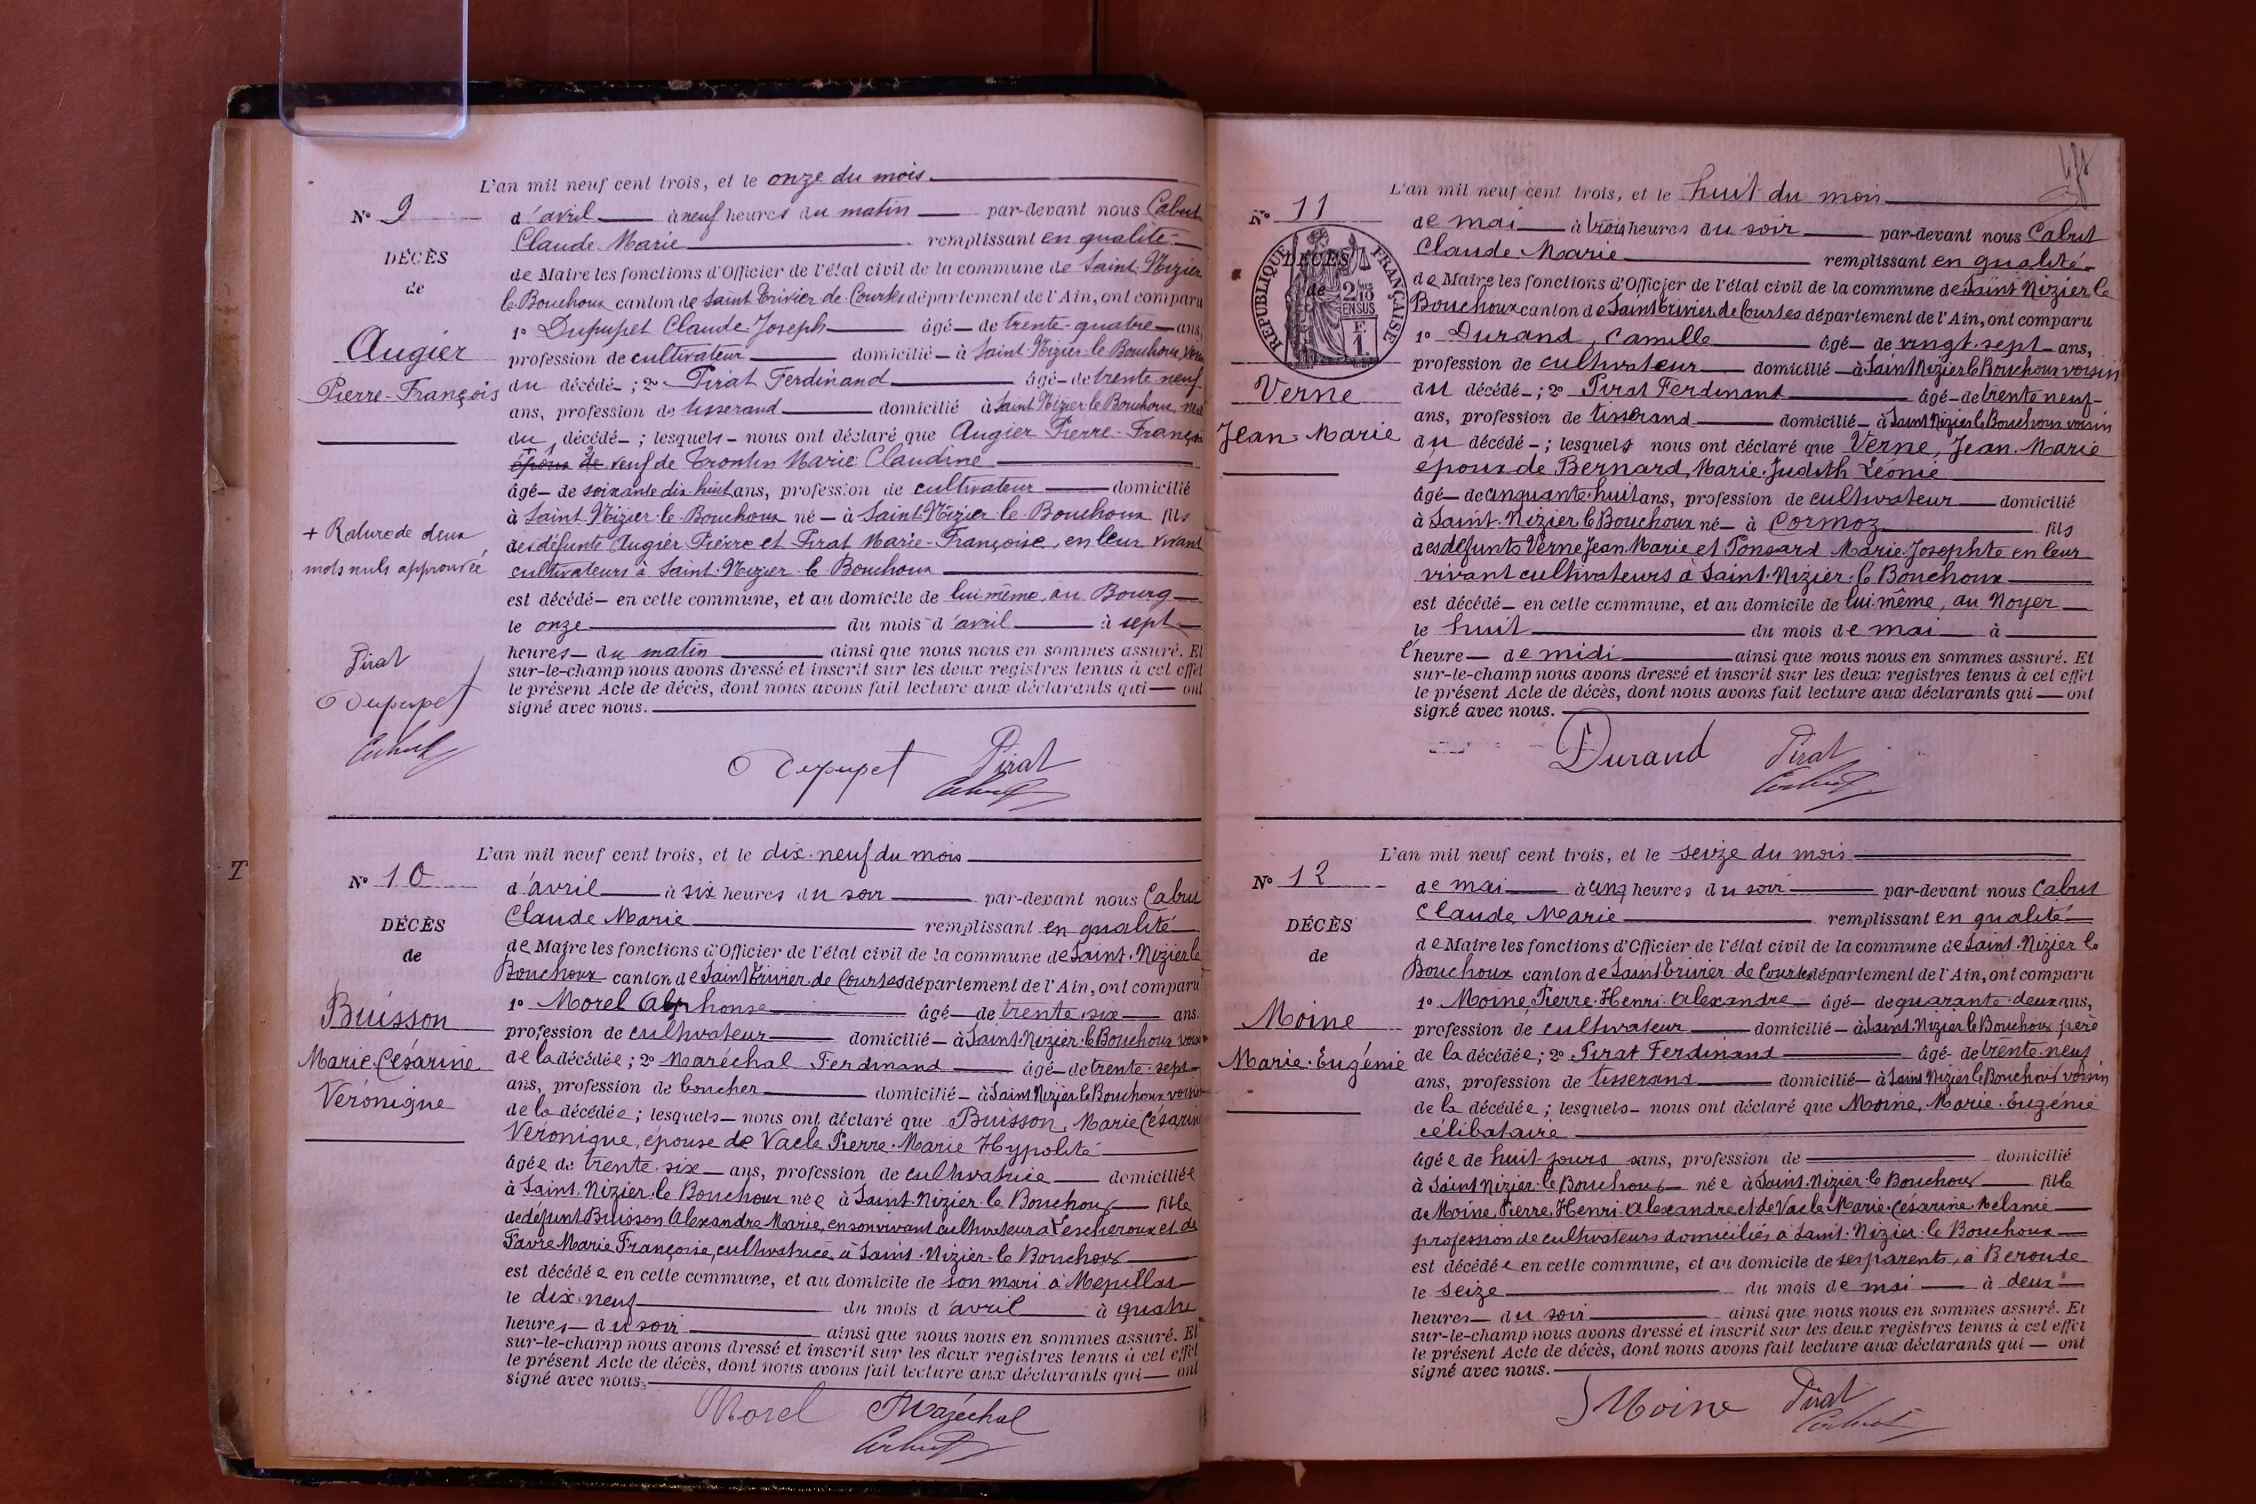 L'an mil neuf cent trois, et le onze du mois
N° 9
d'avril à neuf heures du matin par-devant nous Cabut
Claude Marie remplissant en qualité
DÉCÈS
de Maire les fonctions d'Officier de l'état civil de la commune de Saint-Nizier
de
le Bouchoux canton de Saint Trivier de Courtes département de l'Ain, ont comparu
1° Dupupet Claude Joseph âgé de trente-quatre ans,
Augier
profession de cultivateur domicilié à Saint-Nizier-le Bouchoux, voisin
Pierre-François
du décédé ; 2° Pirat Ferdinand âgé de trente neuf
ans, profession de tisserand domicilié à Saint Nizier le Bouchoux
du décédé ; lesquels nous ont déclaré que Augier Pierre-François
époux de veuf de Trontin Marie Claudine
âgé de soixante dix huit ans, profession de cultivateur domicilié
à Saint-Nizier-le-Bouchoux né à Saint-Nizier-le-Bouchoux fils
+ Rature de deux
des défunts Augier Pierre et Pirat Marie-Françoise, en leur vivant
mots nuls approuvée
cultivateurs à Saint-Nizier-le Bouchoux
est décédé en cette commune, et au domicile de lui même, au Bourg
le onze du mois d'avril à sept
heures du matin ainsi que nous nous en sommes assuré. Et
sur-le-champ nous avons dressé et inscrit sur les deux registres tenus à cet effet
le présent Acte de décès, dont nous avons fait lecture aux déclarants qui ont
signé avec nous.
Pirat
Dupupet
Cabut
Dupupet Pirat
Cabut
L'an mil neuf cent trois, et le dix-neuf du mois
N° 10
d'avril à six heures du soir par-devant nous Cabut
Claude Marie remplissant en qualité
DÉCÈS
de Maire les fonctions d'Officier de l'état civil de la commune de Saint-Nizier le
de
Bouchoux canton de Saint Trivier de Courtes département de l'Ain, ont comparu
1° Morel Alphonse âgé de trente-six ans.
Buisson
profession de cultivateur domicilié à Saint-Nizier-le Bouchoux voisin
Marie-Césarine
de la décédée ; 2° Maréchal Ferdinand âgé de trente-sept
Véronique
ans, profession de boucher domicilié à Saint Nizier le Bouchoux voisin
de la décédée ; lesquels nous ont déclaré que Buisson, Marie Césarine
Véronique, épouse de Vacle Pierre-Marie Hypolite
âgée de trente-six ans, profession de cultivatrice domiciliée
à Saint-Nizier-le Bouchoux née à Saint-Nizier-le Bouchoux fille
de défunt Buisson Alexandre Marie, en son vivant cultivateur à Lescheroux et de
Favre Marie Françoise, cultivatrice à Saint-Nizier-le Bouchoux
est décédée en cette commune, et au domicile de son mari à Mépillat
le dix-neuf du mois d'avril à quatre
heures du soir ainsi que nous nous en sommes assuré. Et
sur-le-champ nous avons dressé et inscrit sur les deux registres tenus à cet effet
le présent Acte de décès, dont nous avons fait lecture aux déclarants qui ont
signé avec nous.
Morel Maréchal
Cabut
L'an mil neuf cent trois, et le huit du mois
N° 11
de mai à trois heures du soir par-devant nous Cabut
Claude Marie remplissant en qualité
DÉCÈS
de
RÉPUBLIQUE FRANÇAISE
2/10 EN SUS
F.
1.
de Maire les fonctions d'Officier de l'état civil de la commune de Saint Nizier le
Bouchoux canton de Saint Trivier de Courtes département de l'Ain, ont comparu
1° Durand, Camille âgé de vingt-sept ans,
profession de cultivateur domicilié à Saint Nizier le Bouchoux voisin
Verne
du décédé ; 2° Pirat Ferdinand âgé de trente neuf
ans, profession de tisserand domicilié à Saint Nizier le Bouchoux voisin
Jean-Marie
du décédé ; lesquels nous ont déclaré que Verne, Jean-Marie
époux de Bernard, Marie-Judith Léonie
âgé de cinquante-huit ans, profession de cultivateur domicilié
à Saint-Nizier le Bouchoux né à Cormoz fils
des défunts Verne Jean-Marie et Ponsard Marie-Josephte en leur
vivant cultivateurs à Saint-Nizier-le Bouchoux
est décédé en cette commune, et au domicile de lui-même, au Noyer
le huit du mois de mai à
l'heure de midi ainsi que nous nous en sommes assuré. Et
sur-le-champ nous avons dressé et inscrit sur les deux registres tenus à cet effet
le présent Acte de décès, dont nous avons fait lecture aux déclarants qui ont
signé avec nous.
Durand Pirat
Cabut
L'an mil neuf cent trois, et le seize du mois
N° 12
de mai à cinq heures du soir par-devant nous Cabut
Claude Marie remplissant en qualité
DÉCÈS
de Maire les fonctions d'Officier de l'état civil de la commune de Saint-Nizier le
de
Bouchoux canton de Saint Trivier de Courtes département de l'Ain, ont comparu
1° Moine, Pierre-Henri-Alexandre âgé de quarante-deux ans,
Moine
profession de cultivateur domicilié à Saint-Nizier le Bouchoux père
Marie-Eugénie
de la décédée ; 2° Pirat Ferdinand âgé de trente-neuf
ans, profession de tisserand domicilié à Saint Nizier le Bouchoux voisin
de la décédée ; lesquels nous ont déclaré que Moine, Marie-Eugénie
célibataire
âgée de huit jours ans, profession de domicilié
à Saint Nizier-le Bouchoux née à Saint-Nizier-le Bouchoux fille
de Moine Pierre-Henri-Alexandre et de Vacle Marie-Césarine-Mélanie
profession de cultivateurs domiciliés à Saint-Nizier-le Bouchoux
est décédée en cette commune, et au domicile de ses parents, à Beroude
le seize du mois de mai à deux
heures du soir ainsi que nous nous en sommes assuré. Et
sur-le-champ nous avons dressé et inscrit sur les deux registres tenus à cet effet
le présent Acte de décès, dont nous avons fait lecture aux déclarants qui ont
signé avec nous.
Moine Pirat
Cabut